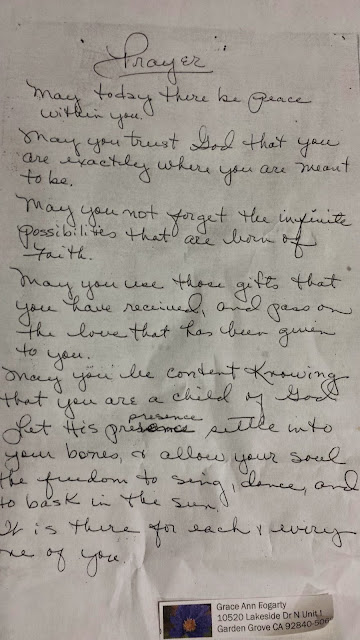 Prayer
May today there be peace
within you.
May you trust God that you
are exactly where you are meant
to be.
May you not forget the infinite
possibilities that are born of
faith.
May you use those gifts that
you have received, and pass on
the love that has been given
to you.
May you be content knowing
that you are a child of God
presence
Let His presence settle into
your bones, & allow your soul
the freedom to sing, dance, and
to bask in the sun.
It is there for each & every
one of you.
Grace Ann Fogarty
10520 Lakeside Dr N Unit
Garden Grove CA 92840-506